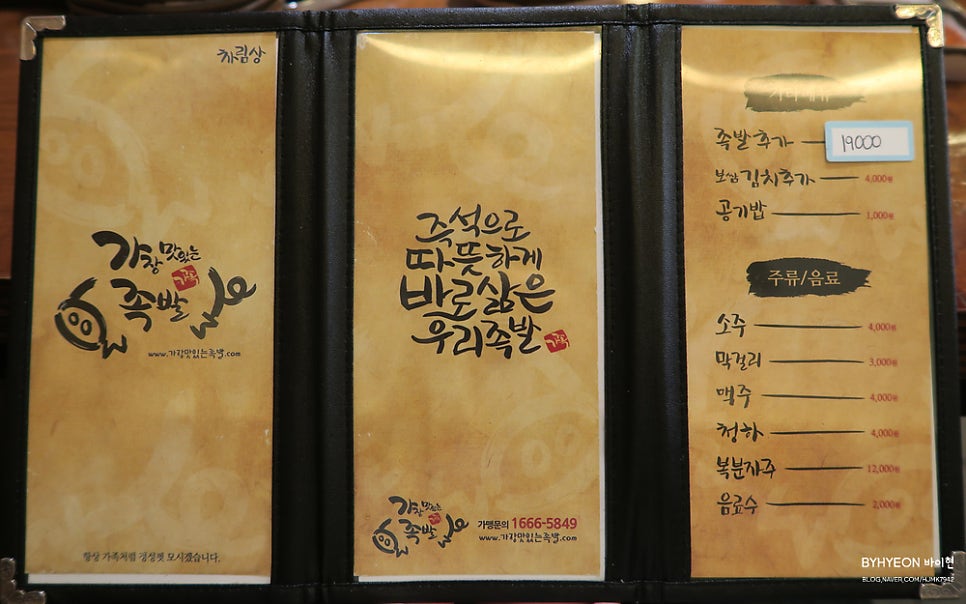 차림상
가장 맛있는
족발
가족
www.가장맛있는족발.com
항상 가족처럼 정성껏 모시겠습니다.
즉석으로
따뜻하게
바로삶은
우리족발
가족
가장 맛있는
족발
가맹문의 1666-5849
www.가장맛있는족발.com
기타메뉴
족발 추가 19000
보쌈김치추가 4,000원
공기밥 1,000원
주류/음료
소주 4,000원
막걸리 3,000원
맥주 4,000원
청하 4,000원
복분자주 12,000원
음료수 2,000원
BYHYEON 바이현
BLOG.NAVER.COM/HJMK7942